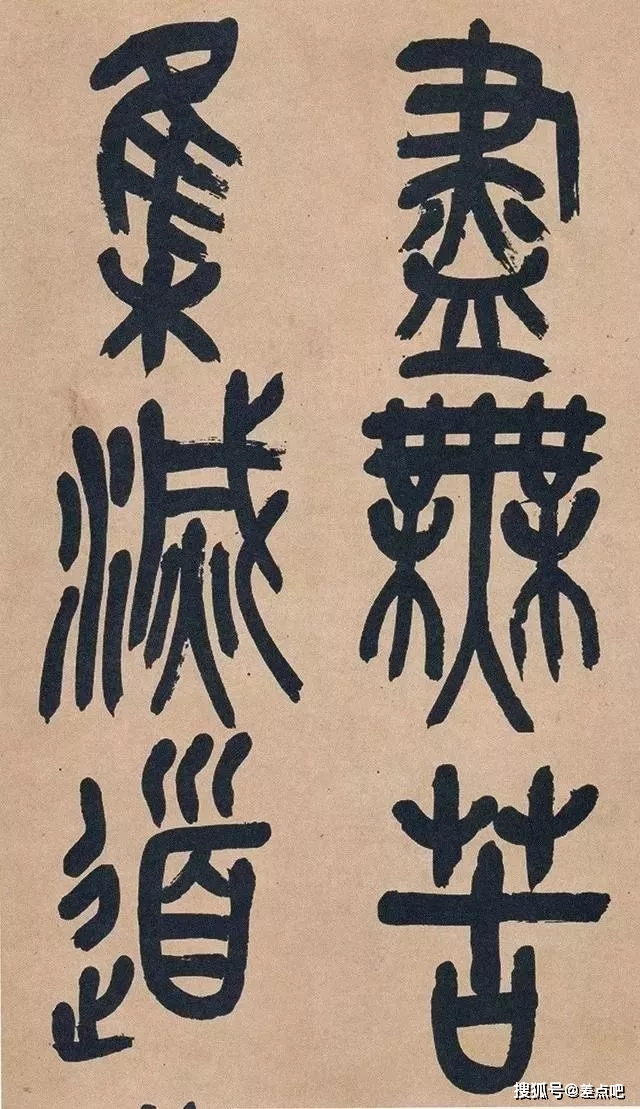 盡無苦
集滅道
搜狐号@差点吧